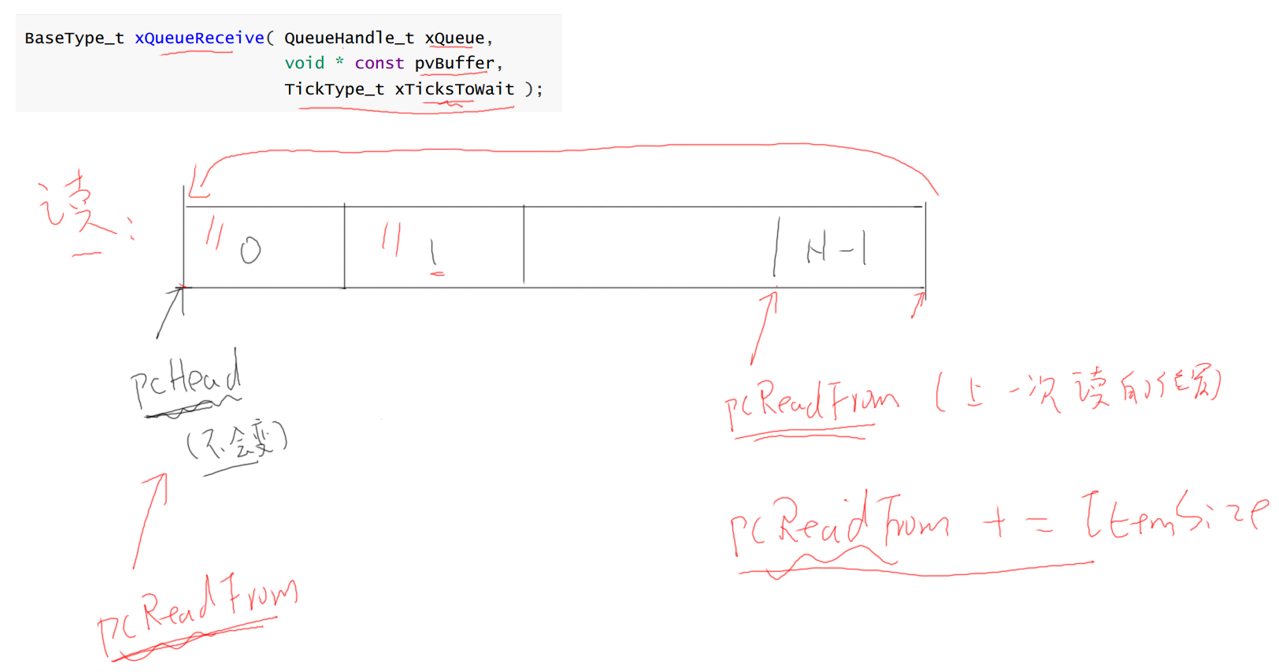 BaseType_t xQueueReceive( QueueHandle_t xQueue,
void * const pvBuffer,
TickType_t xTicksToWait );
读:
0 1 N-1
pcHead
(不会变)
pcReadFrom (上一次读的位置)
pcReadFrom += ItemSize
pcReadFrom